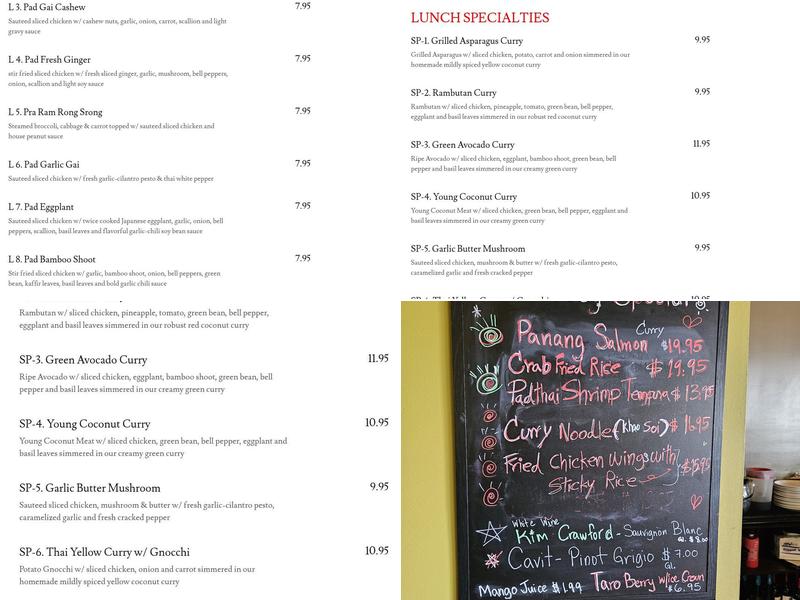 L 3. Pad Gai Cashew 7.95
Sauteed sliced chicken w/ cashew nuts, garlic, onion, carrot, scallion and light
gravy sauce
L 4. Pad Fresh Ginger 7.95
stir fried sliced chicken w/ fresh sliced ginger, garlic, mushroom, bell peppers,
onion, scallion and light soy sauce
L 5. Pra Ram Rong Srong 7.95
Steamed broccoli, cabbage & carrot topped w/ sauteed sliced chicken and
house peanut sauce
L 6. Pad Garlic Gai 7.95
Sauteed sliced chicken w/ fresh garlic-cilantro pesto & thai white pepper
L 7. Pad Eggplant 7.95
Sauteed sliced chicken w/ twice cooked Japanese eggplant, garlic, onion, bell
peppers, scallion, basil leaves and flavorful garlic-chili soy bean sauce
L 8. Pad Bamboo Shoot 7.95
Stir fried sliced chicken w/ garlic, bamboo shoot, onion, bell peppers, green
bean, kaffir leaves, basil leaves and bold garlic chili sauce
LUNCH SPECIALTIES
SP-1. Grilled Asparagus Curry 9.95
Grilled Asparagus w/ sliced chicken, potato, carrot and onion simmered in our
homemade mildly spiced yellow coconut curry
SP-2. Rambutan Curry 9.95
Rambutan w/ sliced chicken, pineapple, tomato, green bean, bell pepper,
eggplant and basil leaves simmered in our robust red coconut curry
SP-3. Green Avocado Curry 11.95
Ripe Avocado w/ sliced chicken, eggplant, bamboo shoot, green bean, bell
pepper and basil leaves simmered in our creamy green curry
SP-4. Young Coconut Curry 10.95
Young Coconut Meat w/ sliced chicken, green bean, bell pepper, eggplant and
basil leaves simmered in our creamy green curry
SP-5. Garlic Butter Mushroom 9.95
Sauteed sliced chicken, mushroom & butter w/ fresh garlic-cilantro pesto,
caramelized garlic and fresh cracked pepper
Rambutan w/ sliced chicken, pineapple, tomato, green bean, bell pepper,
eggplant and basil leaves simmered in our robust red coconut curry
SP-3. Green Avocado Curry 11.95
Ripe Avocado w/ sliced chicken, eggplant, bamboo shoot, green bean, bell
pepper and basil leaves simmered in our creamy green curry
SP-4. Young Coconut Curry 10.95
Young Coconut Meat w/ sliced chicken, green bean, bell pepper, eggplant and
basil leaves simmered in our creamy green curry
SP-5. Garlic Butter Mushroom 9.95
Sauteed sliced chicken, mushroom & butter w/ fresh garlic-cilantro pesto,
caramelized garlic and fresh cracked pepper
SP-6. Thai Yellow Curry w/ Gnocchi 10.95
Potato Gnocchi w/ sliced chicken, onion and carrot simmered in our
homemade mildly spiced yellow coconut curry
Panang Salmon Curry $19.95
Crab Fried Rice $19.95
Padthai Shrimp Tempura $13.95
Curry Noodle (khao Soi) $16.95
Fried Chicken Wings with $15.95
Sticky Rice
White Wine
Kim Crawford - Sauvignon Blanc
Gl. $8.00
Cavit - Pinot Grigio $7.00
Gl.
Mango Juice $1.99 Taro Berry w/ice Cream
$6.95